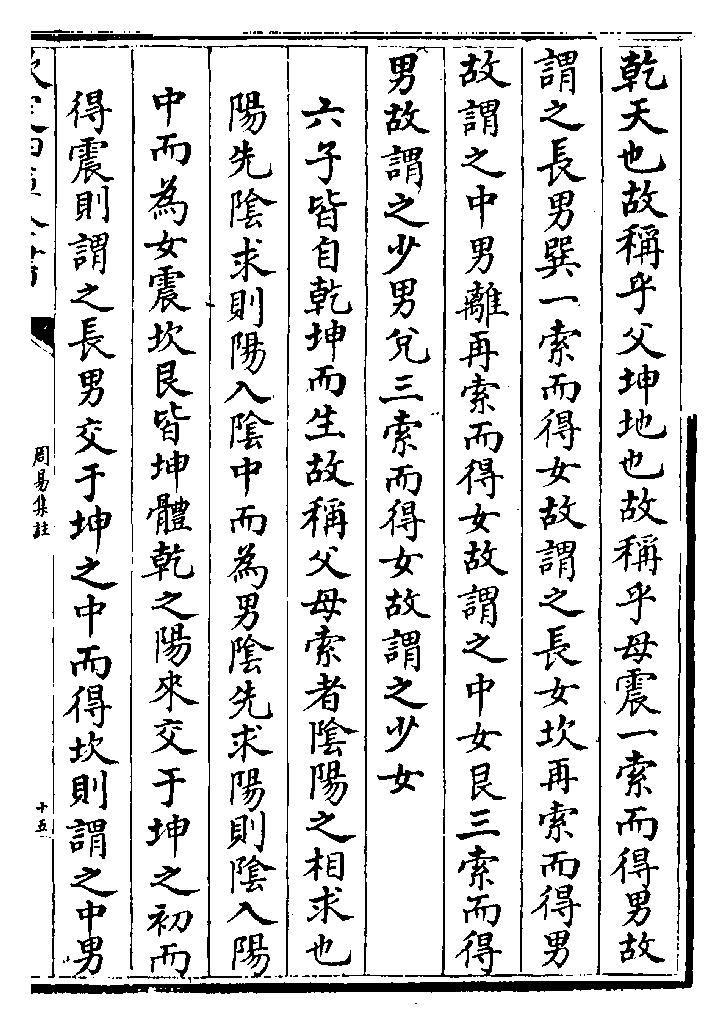 乾天也故稱乎父坤地也故稱乎母震一索而得男故
謂之長男巽一索而得女故謂之長女坎再索而得男
故謂之中男離再索而得女故謂之中女艮三索而得
男故謂之少男兌三索而得女故謂之少女
六子皆自乾坤而生故稱父母索者陰陽之相求也
陽先陰求則陽入陰中而為男陰先求陽則陰入陽
中而為女震坎艮皆坤體乾之陽來交于坤之初而
得震則謂之長男交于坤之中而得坎則謂之中男
周易集註
十五